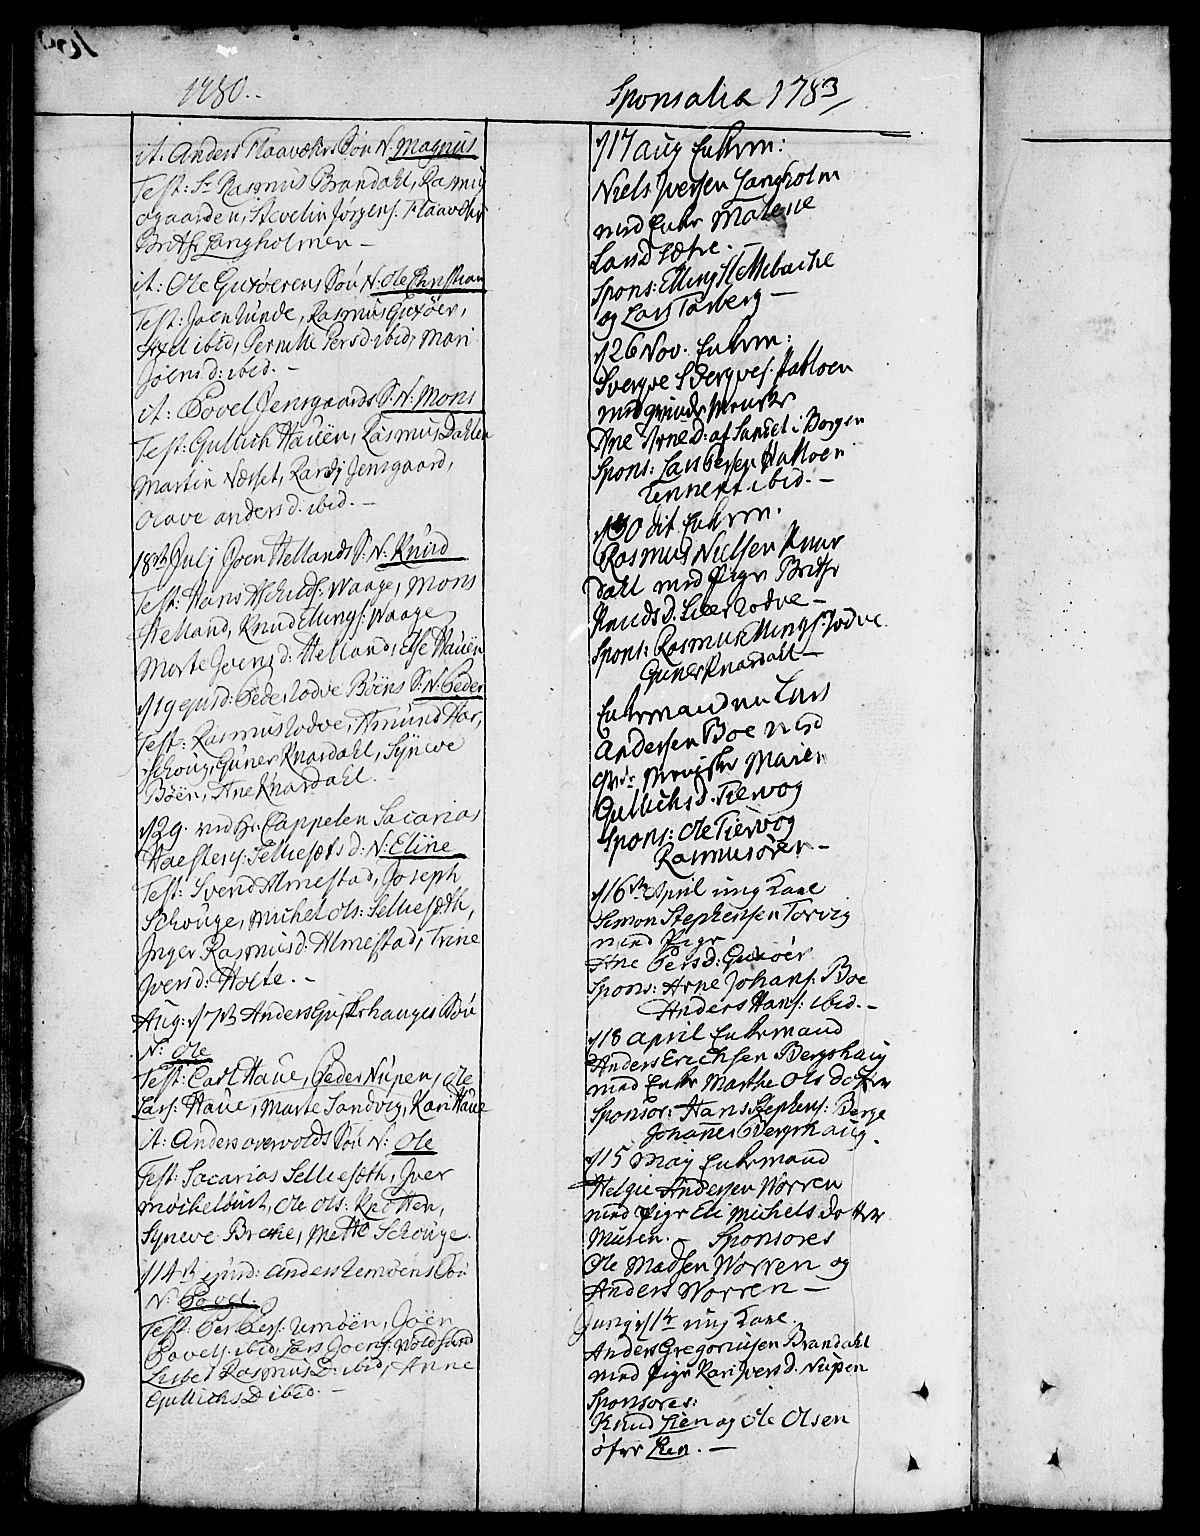 1780..
it: Anders Flaavæhrs Søn N: Magnus
Test: Sr Rasmus Brandahl, Rasmus
ogaarden, Sevelin Jørgens: Flaavæhr
Brithe Langholmen –
it: Ole Guxøerens Søn N: Ole Christian
Test: Joen Runde, Rasmus Guxøer,
Axel ibid, Pernille Persd: ibid, Mari
Joensd: ibid. –
it: Povel Jensgaards S: N: Mons
Test: Gullich Hauën, Rasmus Dahlen
Martin Næsset, Randj Jensgaard,
Olave andersd: ibid. –
18de Julj Joen Hellands S: N: Knud
Test: Hans Waage, Mons
Helland, Knud Ellings: Waage
Marte Joensd: Helland, Else Hauën
d 19 ejusd: Peder Rodve Böens S: N: Peder
Test: Rasmus Rodve, Amund Har,
Schoug, Guner Knardahl, Synewe
Böen, Ane Knardahl. –
d 29. ved Hr. Cappelen Sacarias
Sellieseths d: N: Eline
Test: Svend Almestad, Joseph
Schouge, Michel Ols: Sellieseth,
Inger Rasmusd: Almestad, Trine
Iversd: Holte. –
Aug: d 7de Anders Søn
N: Ole
Test: Carl Haue, Peder Nupen, Ole
Lars: Haue, Marte Sandvig, Kari Haue
it: Anders overvolds Søn N: Ole
Test: Sacarias Sellieseth, Iver
Ole Ols: Knotten,
Synewe Brche, Mette Schouge.
d 14de ejusd: Anders Remöens Søn
N: Povel.
Test: Per Pers: Remöen, Joën
Povels: ibid, Lars Joens: Voldsund
Lisbet Rasmus D: ibid, Anne
Gullichs D ibid. –
Sponsalia 1783
d 17 aug Enkem:
Niels Iversen Langholm
med Enke Malene
Landsætre.
Spons: Elling Hellebache
og Lars Torberg –
d 26 Nov. Enkem:
Sverqve Sverqves: Hatloen
med qvinde Menske
Ane Arne D: af Sundet i Borgen
Spons: Lars Persen Hatloen
ibid. –
d 30 dit Enkem.
Rasmus Nielsen Knar
dahl med Pige Brithe
Knudsd: Leer Rodve –
Spons: Rasmus Ellings: Rodve
Guner Knardahl –
Enkemanden Lars
Andersen Boe med
qvi: Menniske Maren
Gullichsd. Tiervog
Spons: Ole Tiervog
Rasmusøren –
d 16de April ung Karl
Simon Stephensen Torvig
med Pige
Ane Persd: Guxöer
Spons: Arne Johans: Boe
Anders Hans: ibid. –
d 18 april Enkemand
Anders Erichsen Bergshaug
med Enke Marthe Ols dotter
Sponsor: Hans Stephens: Berge
Johannes Bergshaug.
d 15 Maij Enkemand
Helgie Andersen Worren
med Pige Eli Michels dotter
Muren. – Sponsores
Ole Madsen Worren og
Anders Worren –
Juny d 1te ung Karl.
Anders Gregoriusen Brandahl
med Pige Kari Ivers D. Nupen
Sponsores:
Knud Lien og Ole Olsen
øfre Lien. –